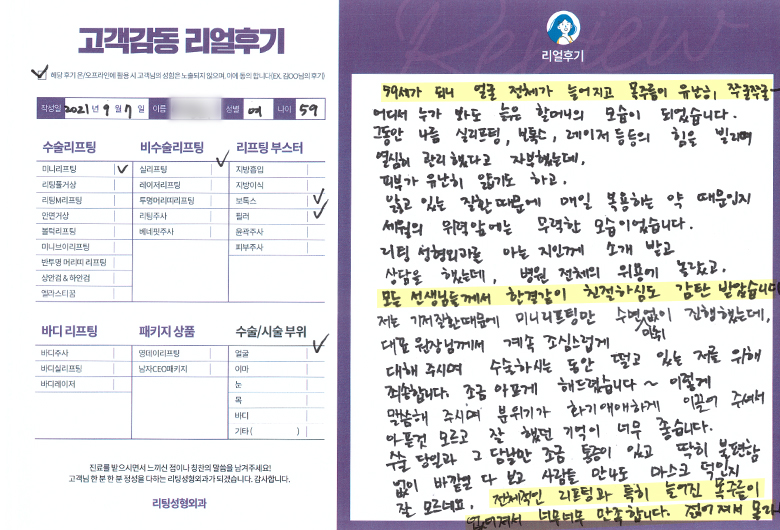 고객감동 리얼후기
해당 후기 온/오프라인에 활용 시 고객님의 성함은 노출되지 않으며, 이에 동의 합니다(EX. 김OO님의 후기)
작성일 2021년 9월 7일 이름 성별 여 나이 59
수술리프팅
미니리프팅
리팅풀거상
리팅M리프팅
안면거상
볼턱리프팅
미니브이리프팅
반투명 머리띠 리프팅
상안검 & 하안검
엘러스티꿈
비수술리프팅
실리프팅
레이저리프팅
투명머리띠리프팅
리팅주사
베네핏주사
리프팅 부스터
지방흡입
지방이식
보톡스
필러
윤곽주사
피부주사
바디 리프팅
바디주사
바디실리프팅
바디레이저
패키지 상품
영데이리프팅
남자CEO패키지
수술/시술 부위
얼굴
이마
눈
목
바디
기타( )
진료를 받으시면서 느끼신 점이나 칭찬의 말씀을 남겨주세요!
고객님 한 분 한 분 정성을 다하는 리팅성형외과가 되겠습니다. 감사합니다.
리팅성형외과
Review
리얼후기
59세가 되니 얼굴 전체가 늘어지고 목주름이 유난히, 쭈글쭈글~
어디서 누가 봐도 늙은 할머니의 모습이 되었습니다.
그동안 나름 실리프팅, 보톡스, 레이저 등등의 힘을 빌리며
열심히 관리했다고 자부했는데,
피부가 유난히 얇기도 하고,
앓고 있는 질환때문에 매일 복용하는 약 때문인지
세월의 위력앞에는 무력한 모습이었습니다.
리팅 성형외과를 아는 지인께 소개 받고
상담을 했는데, 병원 전체의 위용에 놀랐고,
모든 선생님들께서 한결같이 친절하심도 감탄 받았습니다
저는 기저질환때문에 미니리프팅만 수면마취없이 진행했는데,
대표 원장님께서 계속 조심스럽게
대해 주시며 수술하시는 동안 떨고 있는 저를 위해
죄송합니다. 조금 아프게 해드렸습니다~ 이렇게
말씀해 주시며 분위기가 화기애애하게 이끌어 주셔서
아픈것 모르고 잘 했던 기억이 너무 좋습니다.
수술 당일과 그 담날만 조금 통증이 있고 딱히 불편함
없이 바깥일 다 보고 사람들 만나도 마스크 덕인지
잘 모르네요. 전체적인 리프팅과 특히 늘어진 목주름이
없어져서 너무너무 만족합니다. 젊어져서 몰라